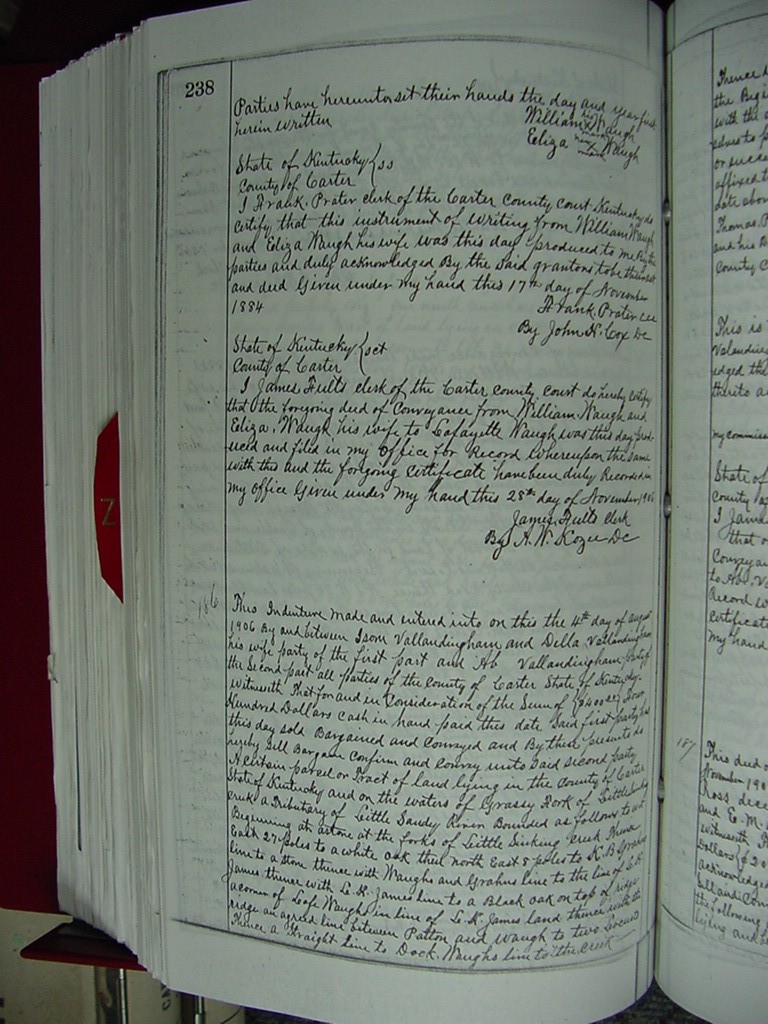 238
Parties have hereunto set their hands the day and year first
herein written
William his x mark Waugh
Eeliza her x mark Waugh
State of Kentucky { ss
County of Carter
I Frank. Prater clerk of the Carter County court Kentucky do
certify that this instrument of writing from William Waugh
and Eeliza Waugh his wife was this day produced to me By the
parties and duly acknowledged By the said grantors to be their act
and deed Given under my hand this 17th day of November
1884
Frank. Prater
By John N. Cox DC
State of Kentucky { sct
County of Carter
I James Fults clerk of the Carter county court do hereby certify
that the foregoing deed of Conveyance from William. Waugh and
Eeliza. Waugh his wife to Lafayette Waugh was this day prod-
uced and filed in my Office for Record whereupon the same
with this and the forgoing certificate have been duly Recorded in
my office Given under my hand this 28th day of November 1906
James Fults Clerk
By H. W. Kozee DC
186
This Indenture made and entered into on this the 4th day of august
1906 By and between Isom Vallandingham and Della Vallandingham
his wife party of the first part and Ab Vallandingham party of
the Second part all parties of the County of Carter State of Kentucky.
Witnesseth That for and in Consideration of the Sum of ($400.00) Four
Hundred Dollars cash in hand paid this date Said first party has
this day sold Bargained and Conveyed and By these presents do
hereby Sell Bargain Confirm and Convey unto Said second party
A certain parcel or Tract of land lying in the County of Carter
State of Kentucky and on the waters of Grassy Fork of Little Sinking
creek a Tributary of Little Sandy River Bounded as follows to wit
Beginning at a stone at the forks of Little Sinking Creek Thence
East 27 poles to a white oak then north East 8 poles to K. B Grahns
line to a stone thence with Waughs and Grahns line to the line of L. K.
James thence with L. K. James line to a Black oak on top of ridge
a corner of Lafe Waughs in line of L. K. James land thence with the
ridge an agreed line between Patton and Waugh to two
Thence a straight line to Dock. Waughs line to the creek
187
This is
State of
County of
that
to Ab. V
Record
certificate
my hand
This deed
November 190
Ross
and E. M.
witnesseth
Dollars
acknowledged
the following
lying and
Z